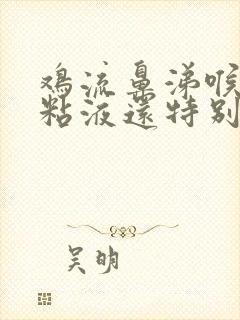 鸡流鼻涕喉
粘液还特别
吴明